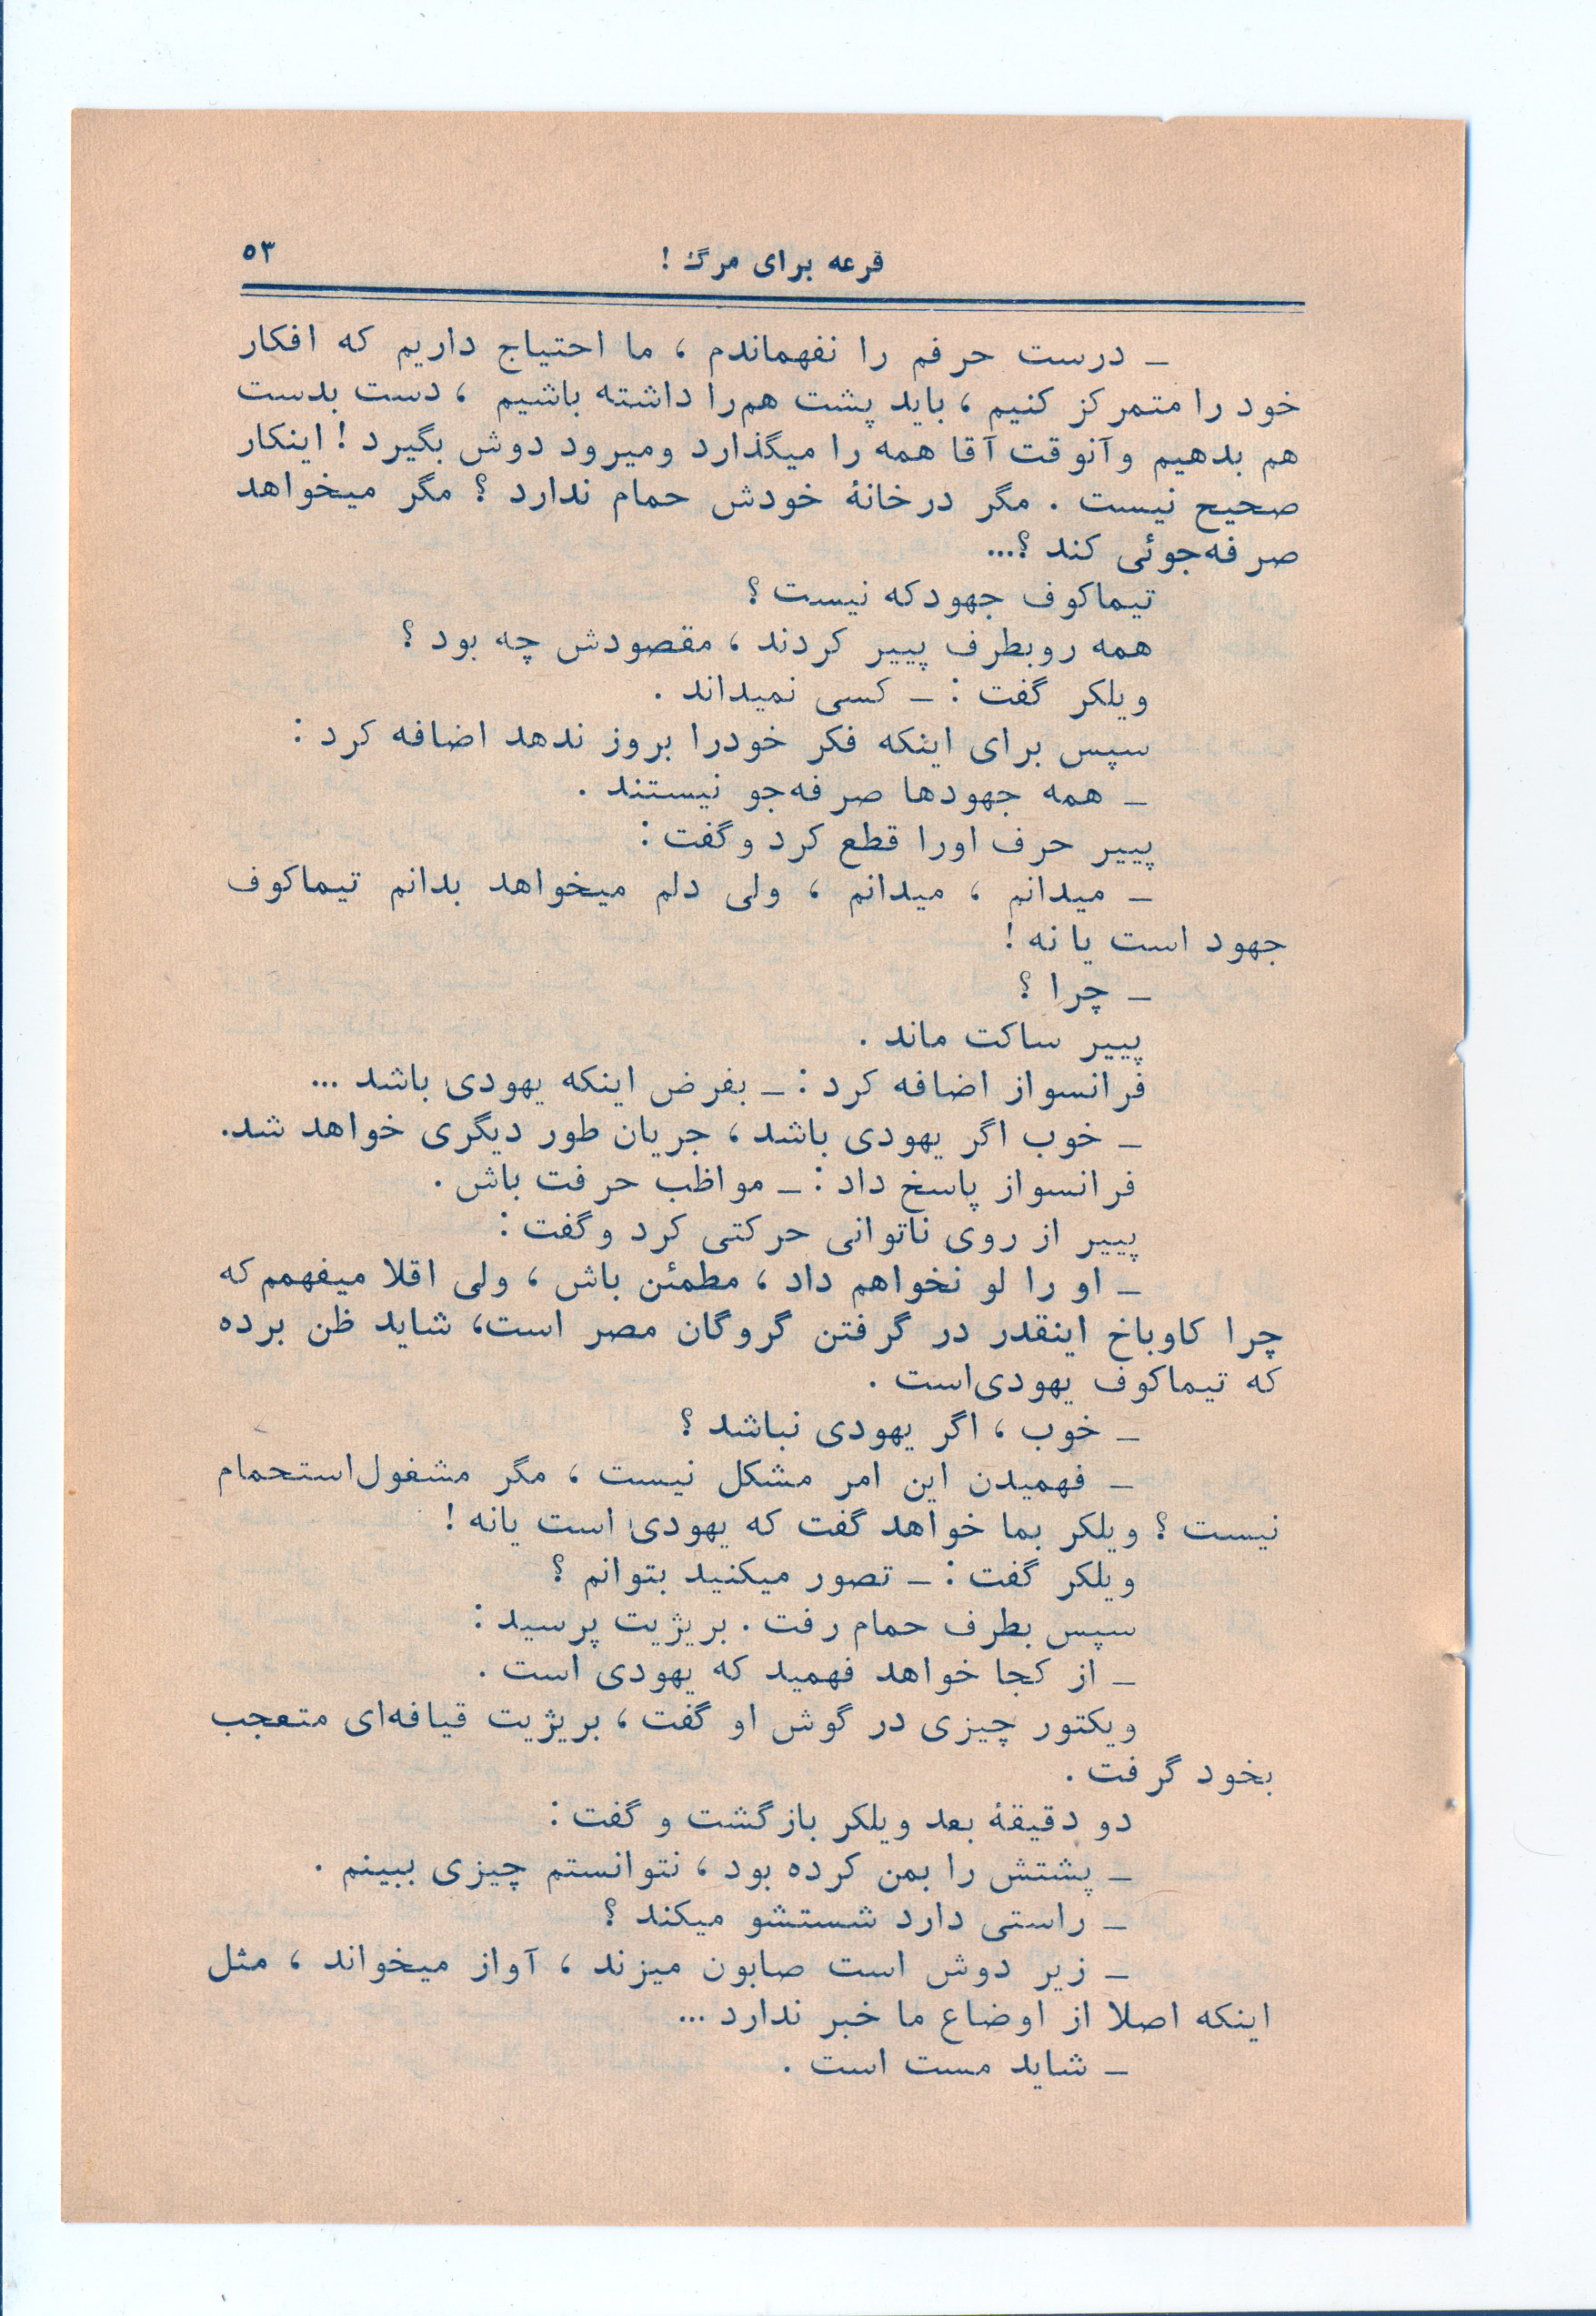 قرعه برای مرگ !
۵۳
ـ درست حرفم را نفهماندم ، ما احتیاج داریم که افکار
خود را متمرکز کنیم ، باید پشت هم‌را داشته باشیم ، دست بدست
هم بدهیم وآنوقت آقا همه را میگذارد ومیرود دوش بگیرد ! اینکار
صحیح نیست . مگر درخانهٔ خودش حمام ندارد ؟ مگر میخواهد
صرفه‌جوئی کند ؟...
تیماکوف جهودکه نیست ؟
همه روبطرف پییر کردند ، مقصودش چه بود ؟
ویلکر گفت : ـ کسی نمیداند .
سپس برای اینکه فکر خودرا بروز ندهد اضافه کرد :
ـ همه جهودها صرفه‌جو نیستند .
پییر حرف اورا قطع کرد وگفت :
ـ میدانم ، میدانم ، ولی دلم میخواهد بدانم تیماکوف
جهود است یا نه !
ـ چرا ؟
پییر ساکت ماند .
فرانسواز اضافه کرد : ـ بفرض اینکه یهودی باشد ...
ـ خوب اگر یهودی باشد ، جریان طور دیگری خواهد شد.
فرانسواز پاسخ داد : ـ مواظب حرفت باش .
پییر از روی ناتوانی حرکتی کرد وگفت :
ـ او را لو نخواهم داد ، مطمئن باش ، ولی اقلا میفهمم که
چرا کاوباخ اینقدر در گرفتن گروگان مصر است، شاید ظن برده
که تیماکوف یهودی‌است .
ـ خوب ، اگر یهودی نباشد ؟
ـ فهمیدن این امر مشکل نیست ، مگر مشغول‌استحمام
نیست ؟ ویلکر بما خواهد گفت که یهودی است یانه !
ویلکر گفت : ـ تصور میکنید بتوانم ؟
سپس بطرف حمام رفت . بریژیت پرسید :
ـ از کجا خواهد فهمید که یهودی است .
ویکتور چیزی در گوش او گفت ، بریژیت قیافه‌ای متعجب
بخود گرفت .
دو دقیقهٔ بعد ویلکر بازگشت و گفت :
ـ پشتش را بمن کرده بود ، نتوانستم چیزی ببینم .
ـ راستی دارد شستشو میکند ؟
ـ زیر دوش است صابون میزند ، آواز میخواند ، مثل
اینکه اصلا از اوضاع ما خبر ندارد ...
ـ شاید مست است .